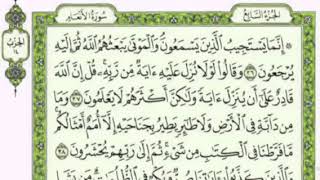 الجزء السابع
سورة الأنعام
الحزب ١٤
۞ إِنَّمَا يَسْتَجِيبُ الَّذِينَ يَسْمَعُونَ وَالْمَوْتَىٰ يَبْعَثُهُمُ اللَّهُ ثُمَّ إِلَيْهِ
يُرْجَعُونَ ٣٦ وَقَالُوا لَوْلَا نُزِّلَ عَلَيْهِ ءَايَةٌ مِّن رَّبِّهِ قُلْ إِنَّ اللَّهَ
قَادِرٌ عَلَىٰ أَن يُنَزِّلَ ءَايَةً وَلَٰكِنَّ أَكْثَرَهُمْ لَا يَعْلَمُونَ ٣٧ وَمَا
مِن دَابَّةٍ فِي الْأَرْضِ وَلَا طَائِرٍ يَطِيرُ بِجَنَاحَيْهِ إِلَّا أُمَمٌ أَمْثَالُكُم
مَّا فَرَّطْنَا فِي الْكِتَابِ مِن شَيْءٍ ثُمَّ إِلَىٰ رَبِّهِمْ يُحْشَرُونَ ٣٨
وَالَّذِينَ